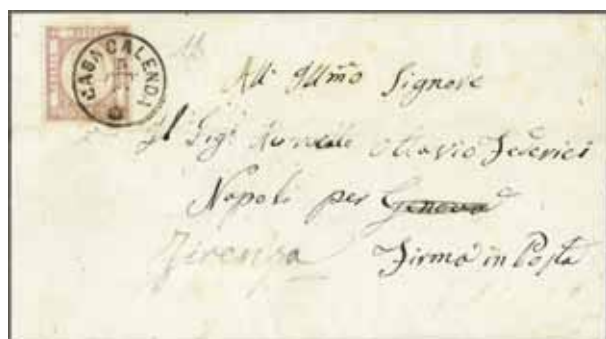 CASACALENDA
All' Illmo Signore
Il Sigr Ottavio Federici
Napoli per Genova
Firenze Ferma in Posta